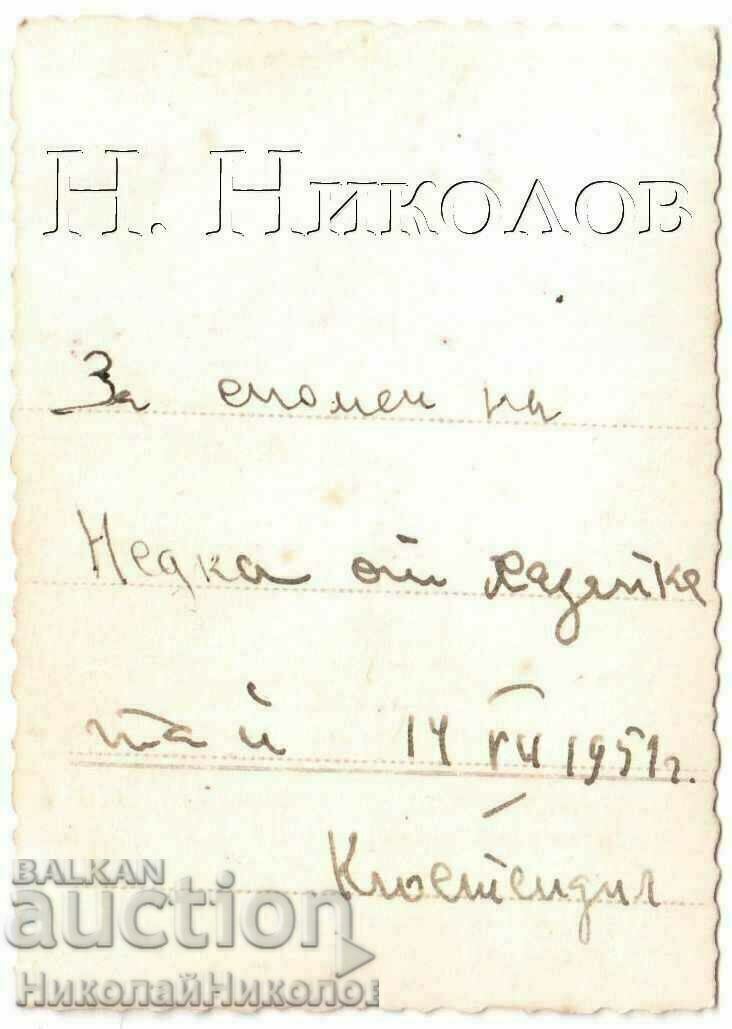 Н. Николов
За спомен на
Недка от
тай 14 VII 1951г.
Кюстендил
BALKAN
auction
НиколайНиколов